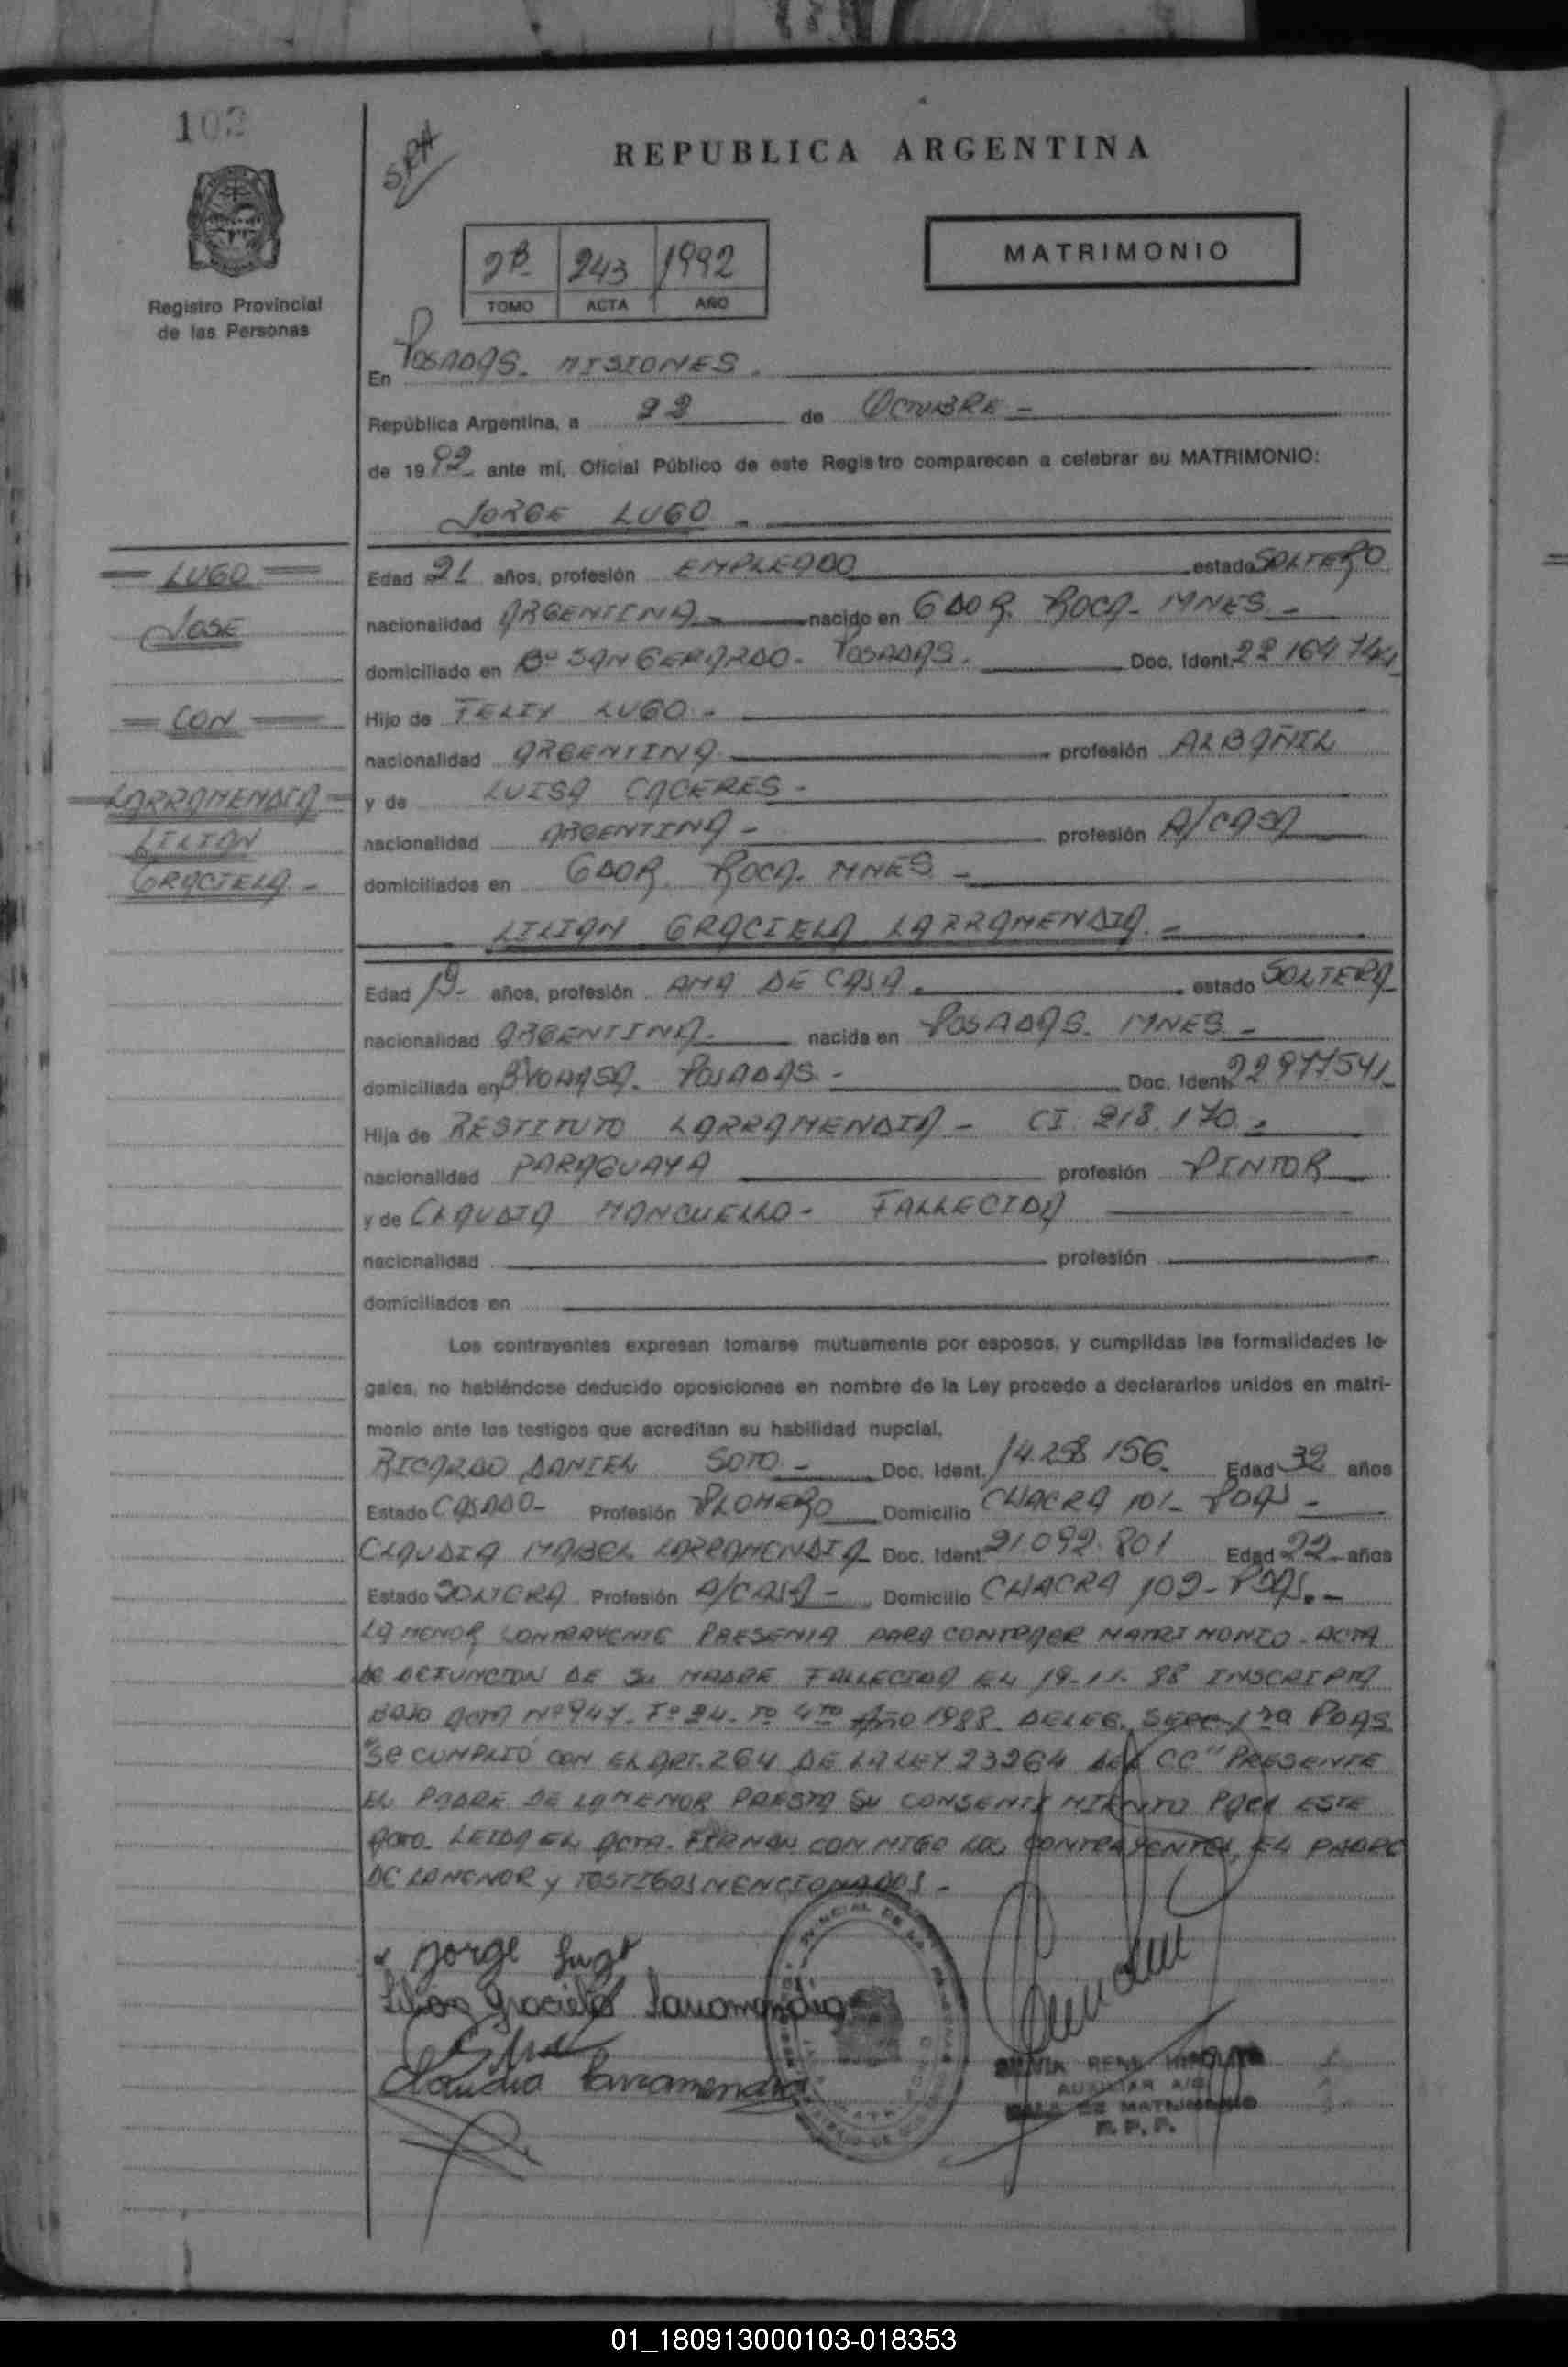 102
SRH
REPUBLICA ARGENTINA
2B 243 1992
TOMO ACTA AÑO
MATRIMONIO
Registro Provincial
de las Personas
En POSADAS. MISIONES.
República Argentina, a 22 de OCTUBRE -
de 1992 ante mí, Oficial Público de este Registro comparecen a celebrar su MATRIMONIO:
JORGE LUGO -
LUGO
JOSE
CON
LARRAMENDIA
LILIAN
GRACIELA -
Edad 21 años, profesión EMPLEADO estado SOLTERO
nacionalidad ARGENTINA - nacido en GDOR. ROCA - MNES -
domiciliado en Bº SAN GERARDO - POSADAS. Doc. Ident. 22 164 744
Hijo de FELIX LUGO -
nacionalidad ARGENTINA profesión ALBAÑIL
y de LUISA CACERES -
nacionalidad ARGENTINA - profesión A/CASA
domiciliados en GDOR. ROCA. MNES -
LILIAN GRACIELA LARRAMENDIA. -
Edad 19- años, profesión AMA DE CASA. estado SOLTERA
nacionalidad ARGENTINA. nacida en POSADAS. MNES -
domiciliada en POSADAS - Doc. Ident. 22977541
Hija de RESTITUTO LARRAMENDIA - CI 218.170 -
nacionalidad PARAGUAYA profesión PINTOR
y de CLAUDIA MANCUELLO - FALLECIDA
nacionalidad profesión
domiciliados en
Los contrayentes expresan tomarse mutuamente por esposos, y cumplidas las formalidades le-
gales, no habiéndose deducido oposiciones en nombre de la Ley procedo a declararlos unidos en matri-
monio ante los testigos que acreditan su habilidad nupcial.
RICARDO DANIEL SOTO - Doc. Ident. 14.258.156 Edad 32 años
Estado CASADO - Profesión PLOMERO Domicilio CHACRA 101 - PDAS -
CLAUDIA MABEL LARRAMENDIA Doc. Ident. 21.092.801 Edad 22 años
Estado SOLTERA Profesión A/CASA - Domicilio CHACRA 102 - PDAS. -
LA MENOR CONTRAYENTE PRESENTA PARA CONTRAER MATRIMONIO - ACTA
DE DEFUNCION DE SU MADRE FALLECIDA EL 19-11-88 INSCRIPTA
BAJO ACTA Nº 947 - Fº 24 - Tº 4to Año 1988. DELEG. SECC 1ra PDAS
"SE CUMPLIÓ CON EL ART. 264 DE LA LEY 23264 DEL CC" PRESENTE
EL PADRE DE LA MENOR PRESTA SU CONSENTIMIENTO PARA ESTE
ACTO. LEIDA EL ACTA. FIRMAN CONMIGO LOS CONTRAYENTES, EL PADRE
DE LA MENOR y TESTIGOS MENCIONADOS -
Jorge Lugo
Lilian Graciela Larramendia
Claudia Larramendia
SILVIA RENE HIPOLITO
AUXILIAR
SALA DE MATRIMONIO
R.P.P.
01_180913000103-018353